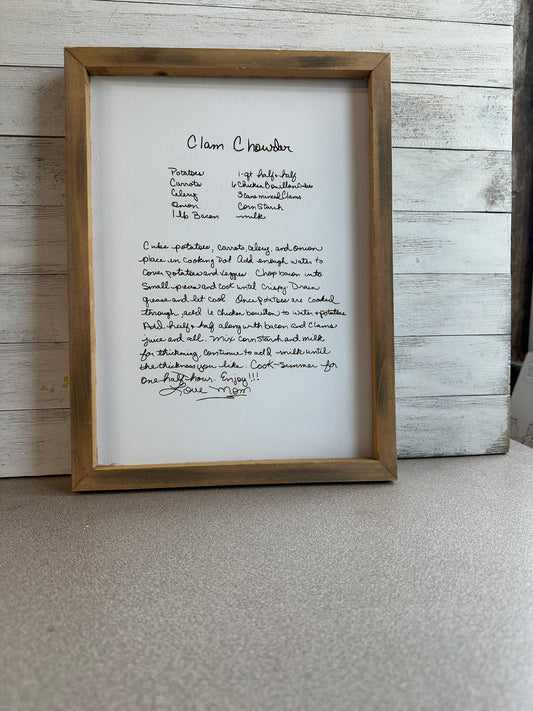 Clam Chowder
Potatoes 1-qt half & half
Carrots 6 Chicken Bouillon Cubes
Celery 3 cans minced Clams
Onion Corn Starch
1 lb. Bacon milk
Cube potatoes, carrots, celery, and onion
place in cooking pot. Add enough water to
cover potatoes and veggies. Chop bacon into
small pieces and cook until crispy. Drain
grease and let cool. Once potatoes are cooked
through, add 6 chicken bouillon to water & potatoes
Add half & half along with bacon and clams
juice and all. Mix corn starch and milk
for thickening, continue to add milk until
the thickness you like. Cook-simmer for
one half-hour. Enjoy!!!
Love Mom